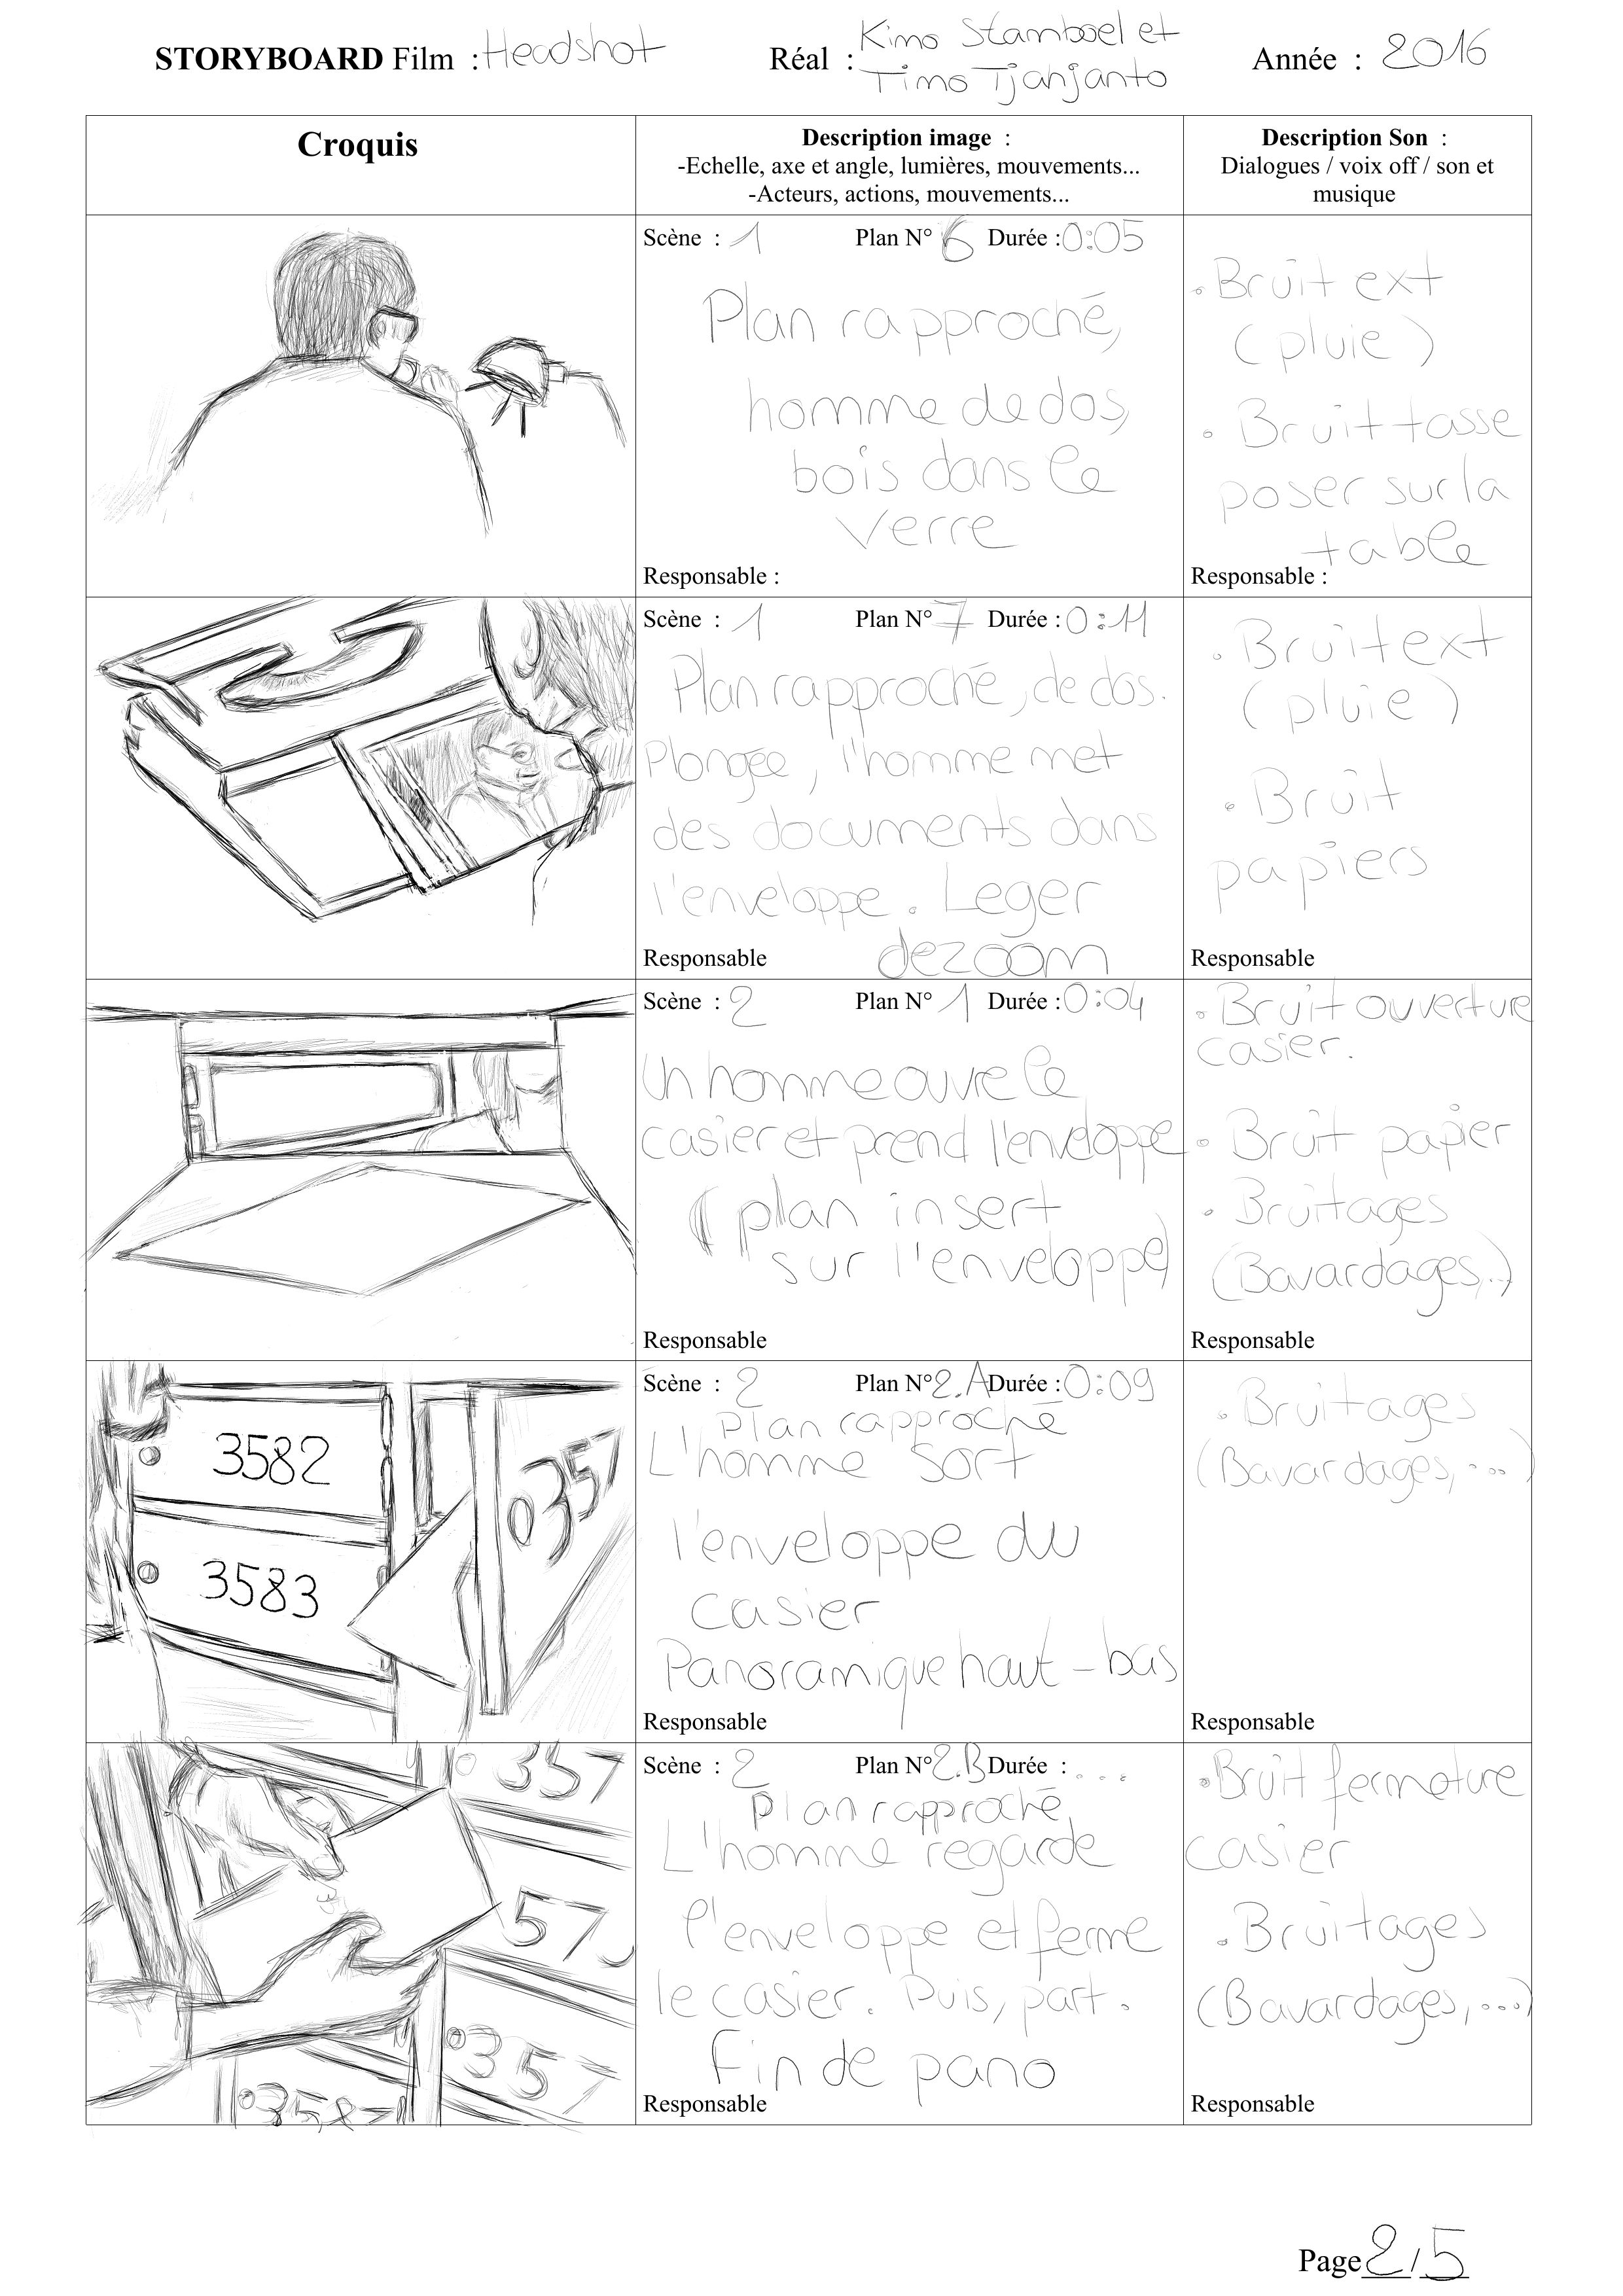 STORYBOARD Film : Headshot Réal : Kimo Stamboel et Timo Tjahjanto Année : 2016
Croquis
Description image :
-Echelle, axe et angle, lumières, mouvements...
-Acteurs, actions, mouvements...
Description Son :
Dialogues / voix off / son et
musique
Scène : 1 Plan N° 6 Durée : 0:05
Plan rapproché,
homme de dos,
bois dans le
verre
Responsable :
• Bruit ext
(pluie)
• Bruit tasse
poser sur la
table
Responsable :
Scène : 1 Plan N° 7 Durée : 0:11
Plan rapproché, de dos.
Plongée, l'homme met
des documents dans
l'enveloppe. Leger
dezoom
Responsable
• Bruit ext
(pluie)
• Bruit
papiers
Responsable
Scène : 2 Plan N° 1 Durée : 0:04
Un homme ouvre le
casier et prend l'enveloppe
(plan insert
sur l'enveloppe)
Responsable
• Bruit ouverture
casier.
• Bruit papier
• Bruitages
(Bavardages,..)
Responsable
3582
3583
0357
Scène : 2 Plan N° 2.A Durée : 0:09
Plan rapproché
L'homme sort
l'enveloppe du
casier
Panoramique haut-bas
Responsable
• Bruitages
(Bavardages,...)
Responsable
357
57
357
Scène : 2 Plan N° 2.B Durée : ...
Plan rapproché
L'homme regarde
l'enveloppe et ferme
le casier. Puis, part.
Fin de pano
Responsable
• Bruit fermeture
casier
• Bruitages
(Bavardages,...)
Responsable
Page 2 / 5